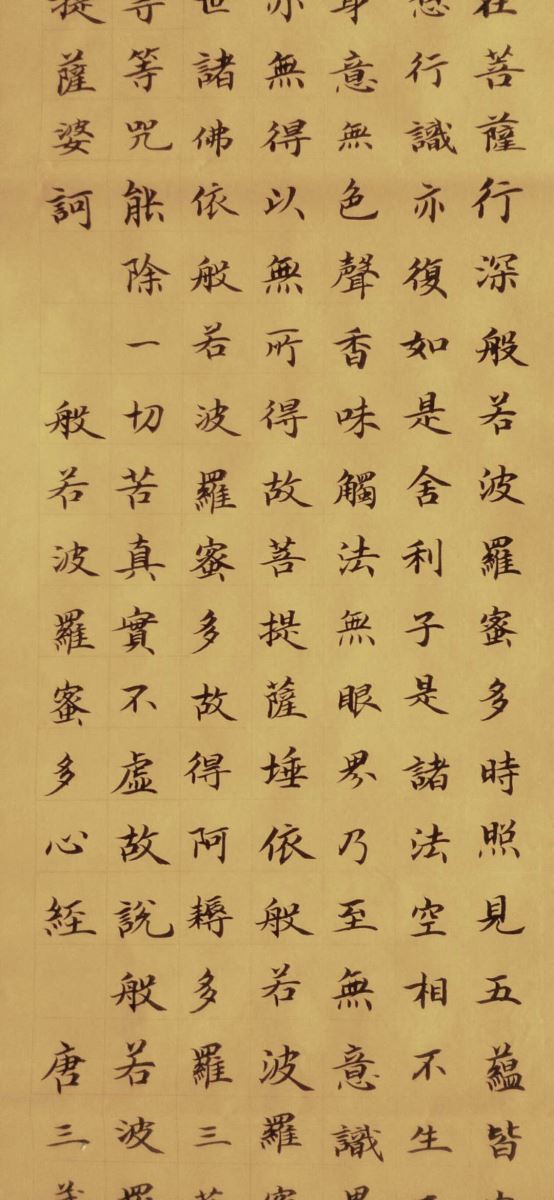 在菩薩行深般若波羅蜜多時照見五蘊皆
行識亦復如是舍利子是諸法空相不生
身意無色聲香味觸法無眼界乃至無意識界
亦無得以無所得故菩提薩埵依般若波羅蜜
世諸佛依般若波羅蜜多故得阿耨多羅三菩
等等咒能除一切苦真實不虛故說般若波羅
提薩婆訶 般若波羅蜜多心經 唐三藏